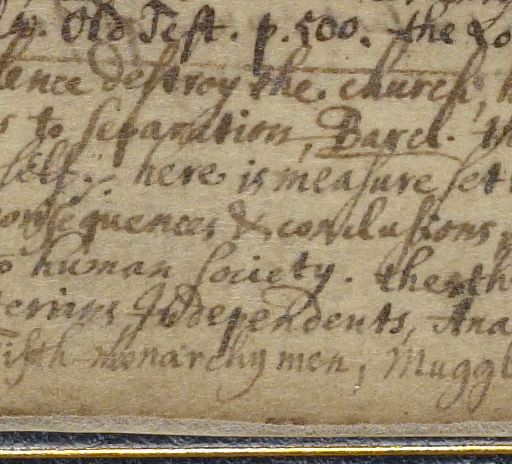 Old Test. p. 500. the
destroy the church,
to separation, Barcl.
here is measure set
consequences & conclusions,
human society.
Independents, Ana
Fifth-monarchy men, Muggl